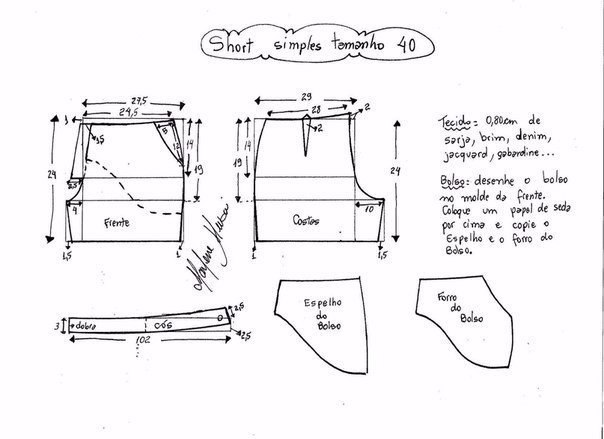 Short simples tamanho 40
27,5
24,5
1
3,5
5
12
14
19
24
3,5
4
Frente
1,5
1
29
28
2
2
14
19
24
10
Costas
1
1,5
Tecido: 0,80cm de
sarja, brim, denim,
jacquard, gabardine...
Bolso: desenhe o bolso
no molde da frente.
Coloque um papel de seda
por cima e copie o
Espelho e o forro do
Bolso.
3
dobra
cós
2,5
2,5
102
Espelho
do
Bolso
Forro
do
Bolso